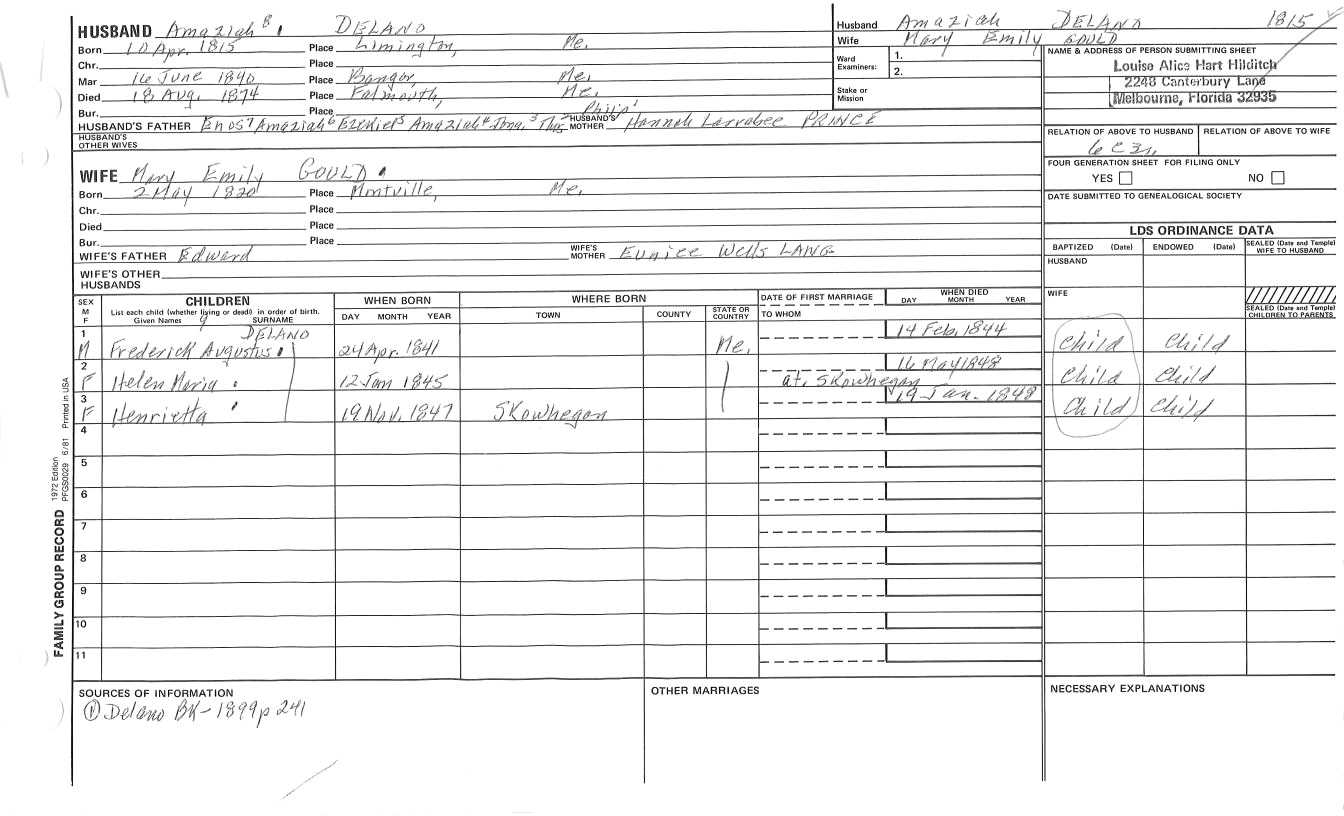 HUSBAND Amaziah 8 DELANO
Born 10 Apr. 1815 Place Limington, Me.
Chr. Place
Mar 16 June 1840 Place Bangor, Me.
Died 18 Aug. 1874 Place Falmouth, Me.
Bur. Place Philip 1
HUSBAND'S FATHER Enos 7 Amaziah 6 Ezekiel 5 Amaziah 4 Jona. 3 Thos 2 HUSBAND'S MOTHER Hannah Larrabee PRINCE
HUSBAND'S OTHER WIVES
WIFE Mary Emily GOULD
Born 2 May 1820 Place Montville, Me.
Chr. Place
Died Place
Bur. Place
WIFE'S FATHER Edward WIFE'S MOTHER Eunice Wells LANG
WIFE'S OTHER HUSBANDS
Husband Amaziah DELANO 1815
Wife Mary Emily GOULD
Ward Examiners: 1.
2.
Stake or Mission
NAME & ADDRESS OF PERSON SUBMITTING SHEET
Louise Alice Hart Hilditch
2248 Canterbury Lane
Melbourne, Florida 32935
RELATION OF ABOVE TO HUSBAND RELATION OF ABOVE TO WIFE
6 C 3r.
FOUR GENERATION SHEET FOR FILING ONLY
YES NO
DATE SUBMITTED TO GENEALOGICAL SOCIETY
LDS ORDINANCE DATA
BAPTIZED (Date) ENDOWED (Date) SEALED (Date and Temple) WIFE TO HUSBAND
HUSBAND
WIFE
SEALED (Date and Temple) CHILDREN TO PARENTS
SEX M F
CHILDREN
List each child (whether living or dead) in order of birth.
Given Names 9 SURNAME
WHEN BORN
DAY MONTH YEAR
WHERE BORN
TOWN COUNTY STATE OR COUNTRY
DATE OF FIRST MARRIAGE
TO WHOM
WHEN DIED
DAY MONTH YEAR
DELANO
1 M Frederick Augustus 24 Apr. 1841 Me. 14 Feb. 1844 Child Child
2 F Helen Maria 12 Jan 1845 16 May 1848 at. Skowhegan Child Child
3 F Henrietta 19 Nov. 1847 Skowhegan 19 Jan. 1848 Child Child
4
5
6
7
8
9
10
11
SOURCES OF INFORMATION
① Delano BK-1899 p 241
OTHER MARRIAGES
NECESSARY EXPLANATIONS
FAMILY GROUP RECORD 1972 Edition PFGS0029 6/81 Printed in USA